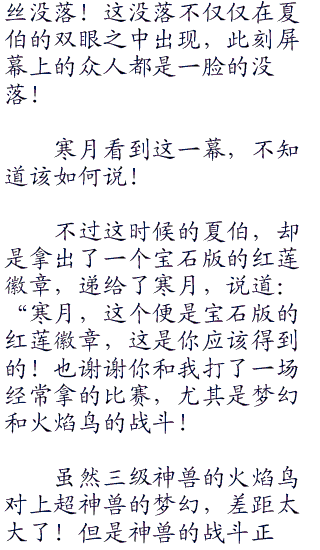 丝没落！这没落不仅仅在夏
伯的双眼之中出现，此刻屏
幕上的众人都是一脸的没
落！
寒月看到这一幕，不知
道该如何说！
不过这时候的夏伯，却
是拿出了一个宝石版的红莲
徽章，递给了寒月，说道：
“寒月，这个便是宝石版的
红莲徽章，这是你应该得到
的！也谢谢你和我打了一场
经常拿的比赛，尤其是梦幻
和火焰鸟的战斗！
虽然三级神兽的火焰鸟
对上超神兽的梦幻，差距太
大了！但是神兽的战斗正